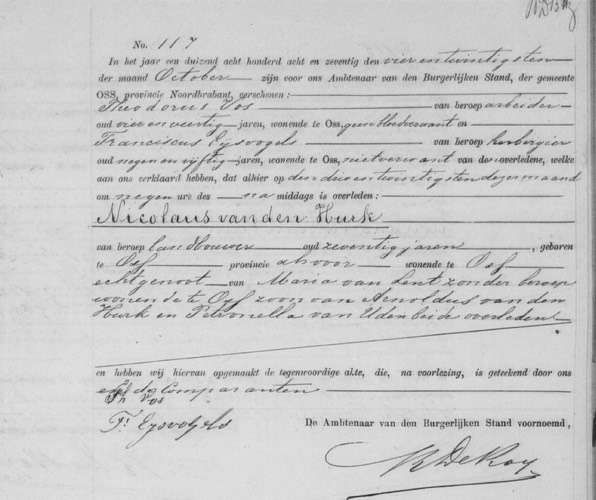 No. 117
In het jaar een duizend acht honderd acht en zeventig den vier en twintigsten
der maand October zijn voor ons Ambtenaar van den Burgerlijken Stand, der gemeente
OSS, provincie Noordbrabant, verschenen:
Theodorus Vos van beroep arbeider
oud vier en veertig jaren, wonende te Oss, geen bloedverwant en
Franciscus Eijsvogels van beroep herbergier
oud negen en vijftig jaren, wonende te Oss, niet verwant van den overledene, welke
aan ons verklaard hebben, dat alhier op den drie en twintigsten dezer maand
om negen ure des na middags is overleden:
Nicolaus van den Hurk
van beroep landbouwer oud zeventig jaren, geboren
te Oss provincie als voor wonende te Oss
echtgenoot van Maria van Lent zonder beroep
wonende te Oss zoon van Arnoldus van den
Hurk en Petronella van Uden beide overleden
en hebben wij hiervan opgemaakt de tegenwoordige akte, die, na voorlezing, is geteekend door ons
en de Comparanten
Th Vos
Fr Eysvogels
De Ambtenaar van den Burgerlijken Stand voornoemd,